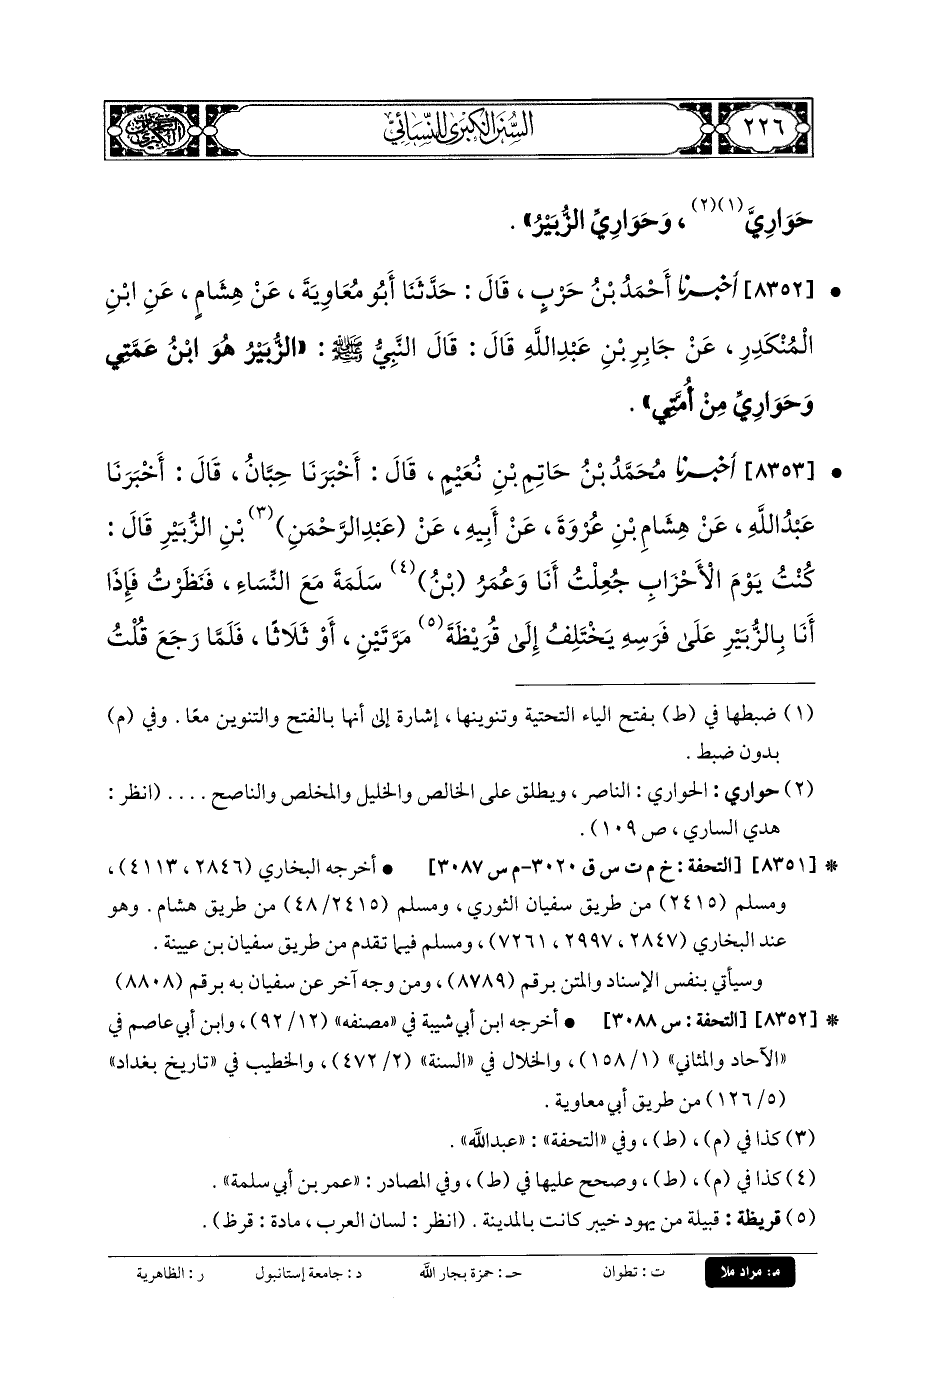 ٢٢٦
السنن الكبرى للنسائي
حَوَارِيَّ(١)(٢)، وَحَوَارِيِّ الزُّبَيْرُ» .
• [٨٣٥٢] أخبرنا أَحْمَدُ بْنُ حَرْبٍ ، قَالَ : حَدَّثَنَا أَبُو مُعَاوِيَةَ ، عَنْ هِشَامٍ ، عَنِ ابْنِ
الْمُنْكَدِرِ ، عَنْ جَابِرِ بْنِ عَبْدِاللَّهِ قَالَ : قَالَ النَّبِيُّ ﷺ : «الزُّبَيْرُ هُوَ ابْنُ عَمَّتِي
وَحَوَارِيِّ مِنْ أُمَّتِي» .
• [٨٣٥٣] أخبرنا مُحَمَّدُ بْنُ حَاتِمِ بْنِ نُعَيْمٍ ، قَالَ : أَخْبَرَنَا حِبَّانُ ، قَالَ : أَخْبَرَنَا
عَبْدُاللَّهِ ، عَنْ هِشَامِ بْنِ عُرْوَةَ ، عَنْ أَبِيهِ ، عَنْ (عَبْدِالرَّحْمَنِ)(٣) بْنِ الزُّبَيْرِ قَالَ :
كُنْتُ يَوْمَ الْأَحْزَابِ جُعِلْتُ أَنَا وَعُمَرُ (بْنُ)(٤) سَلَمَةَ مَعَ النِّسَاءِ ، فَنَظَرْتُ فَإِذَا
أَنَا بِالزُّبَيْرِ عَلَىٰ فَرَسِهِ يَخْتَلِفُ إِلَىٰ قُرَيْظَةَ(٥) مَرَّتَيْنِ ، أَوْ ثَلَاثًا ، فَلَمَّا رَجَعَ قُلْتُ
(١) ضبطها في (ط) بفتح الياء التحتية وتنوينها ، إشارة إلى أنها بالفتح والتنوين معًا . وفي (م)
بدون ضبط .
(٢) حواري : الحواري : الناصر ، ويطلق على الخالص والخليل والمخلص والناصح .... (انظر :
هدي الساري ، ص ١٠٩) .
* [٨٣٥١] [التحفة : خ م ت س ق ٣٠٢٠-م س ٣٠٨٧] • أخرجه البخاري (٢٨٤٦ ، ٤١١٣) ،
ومسلم (٢٤١٥) من طريق سفيان الثوري ، ومسلم (٢٤١٥/ ٤٨) من طريق هشام . وهو
عند البخاري (٢٨٤٧ ، ٢٩٩٧ ، ٧٢٦١) ، ومسلم فيما تقدم من طريق سفيان بن عيينة .
وسيأتي بنفس الإسناد والمتن برقم (٨٧٨٩) ، ومن وجه آخر عن سفيان به برقم (٨٨٠٨)
* [٨٣٥٢] [التحفة : س ٣٠٨٨] • أخرجه ابن أبي شيبة في «مصنفه» (١٢/ ٩٢) ، وابن أبي عاصم في
«الآحاد والمثاني» (١/ ١٥٨) ، والخلال في «السنة» (٢/ ٤٧٢) ، والخطيب في «تاريخ بغداد»
(٥/ ١٢٦) من طريق أبي معاوية .
(٣) كذا في (م) ، (ط) ، وفي «التحفة» : «عبدالله» .
(٤) كذا في (م) ، (ط) ، وصحح عليها في (ط) ، وفي المصادر : «عمر بن أبي سلمة» .
(٥) قريظة : قبيلة من يهود خيبر كانت بالمدينة . (انظر : لسان العرب ، مادة : قرظ) .
م: مراد ملا ت : تطوان حـ : حمزة بجار الله د : جامعة إستانبول ر : الظاهرية